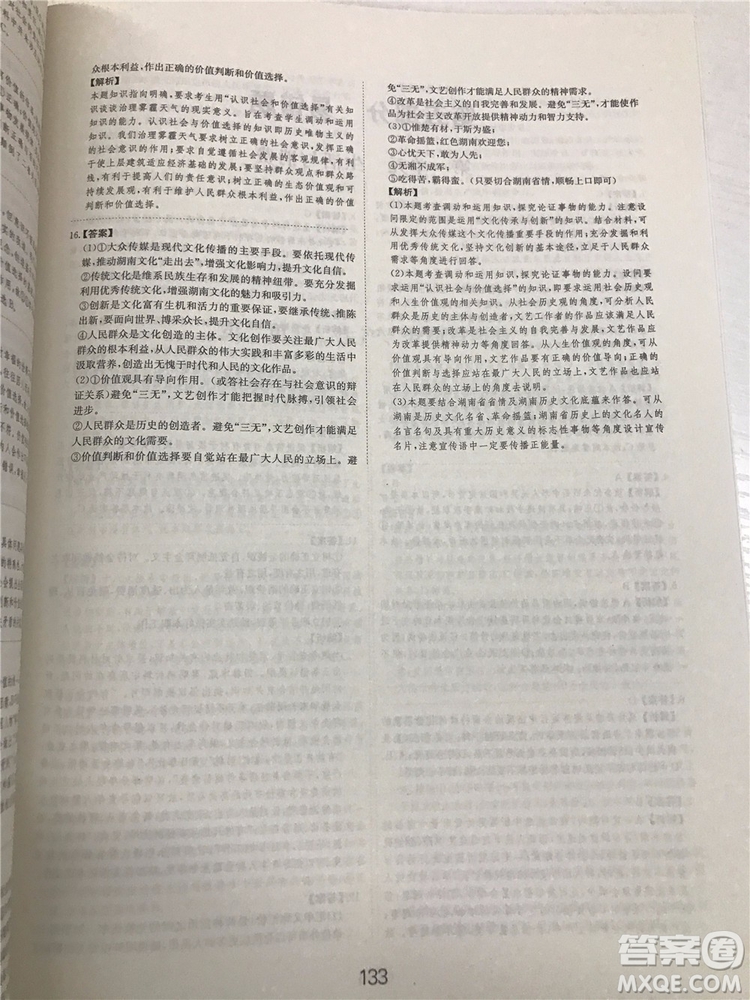 众根本利益,作出正确的价值判断和价值选择。
【解析】
本题知识指向明确,要求考生用“认识社会和价值选择”有关知
识谈谈治理雾霾天气的现实意义。旨在考查学生调动和运用
知识的能力。认识社会与价值选择的知识即历史唯物主义的
知识。我们治理雾霾天气要求正确发挥社会意识的能动作用,
使上层建筑适应经济基础的发展;要求自觉遵循社会发展的客观规律,
有利于提高人们的责任意识;有利于坚持群众观点和群众路
线;有利于实现人们健康生态的价值观和可
持续发展,有利于维护人民群众根本利益,作出正确的价值
判断和价值选择。
16.【答案】
(1)①大众传媒是现代文化传播的主要手段。要依托现代传
媒,推动湖南文化“走出去”,增强文化影响力,提升文化自信。
②传统文化是维系民族生存和发展的精神纽带。要充分发掘
利用优秀传统文化,增强湖南文化的魅力和吸引力。
③创新是文化富有生机和活力的重要保证,要继承传统、推陈
出新,要面向世界、博采众长,提升文化自信。
④人民群众是文化创造的主体。文化创作要关注最广大人民群
众的根本利益,从人民群众的伟大实践和丰富多彩的生活中
汲取营养,创造无愧于时代和人民的文化作品。
(2)①价值观具有导向作用。(或答社会存在与社会意识的辩
证关系)避免“三无”,文艺创作才能把握时代脉搏,引领社会
进步。
②人民群众是历史的创造者。避免“三无”,文艺创作才能满足
人民群众的文化需要。
③价值判断和价值选择要自觉站在最广大人民的立场上。避
免“三无”,文艺创作才能满足人民群众的精神需求。
④改革是社会主义的自我完善和发展。避免“三无”,才能使作
品为社会主义改革开放提供精神动力和智力支持。
(3)①惟楚有材,于斯为盛;
②革命摇篮,红色湖南欢迎您;
③心忧天下,敢为人先;
④无湘不成军;
⑤吃得苦,霸得蛮。(只要切合湖南省情,顺畅上口即可)
【解析】
(1)本题考查调动和运用知识,探究论证事物的能力。注意设
问限定的范围是运用“文化传承与创新”的知识。结合材料,可
从发挥大众传媒的作用、继承传统、推陈出新、充分发掘和利
用优秀传统文化、坚持文化创新的基本途径等角度展开作答。
(2)本题考查调动和运用知识,探究论证事物的能力。设问要
求运用“认识社会与价值选择”的知识,考生需要结合社会历史
观和人生价值观的相关知识。从社会历史的角度,可分析人民
群众是历史的创造者、文艺工作者的作品应满足人民群众的
需要;改革是社会主义的自我完善与发展,文艺作品应为
改革提供精神动力与支持。从人生价值观的角度,可分
析价值观的导向作用,文艺作品应有正确的价值导向;价值判
断和价值选择要自觉站在最广大人民的立场上,文艺作品创作
应从人民群众的立场上等角度去说明。
(3)本题要结合湖南省省情及湖南历史文化底蕴来作答。可从
湖南是历史文化名省、革命摇篮、湖南省历史上的文化名人的
名言名句及具有重大历史意义的标志性事物等角度设计宣传
名片,注意宣传语中一定要传播正能量。
133
答案圈
MXQE.COM